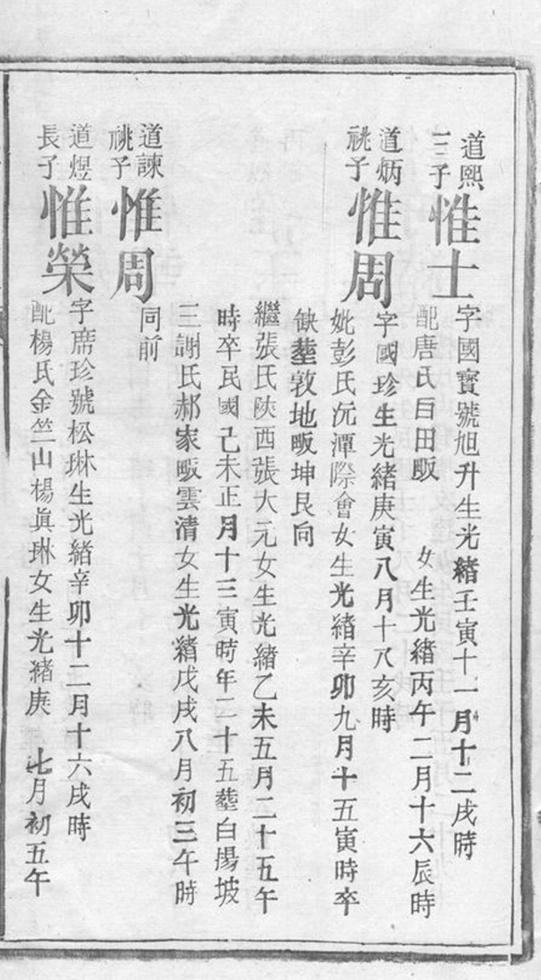 道熙
三子
惟士
字國寶號旭升生光緒壬寅十一月十二戌時
配唐氏白田畈 女生光緒丙午二月十六辰時
道炳
祧子
惟周
字國珍生光緒庚寅八月十八亥時
妣彭氏沅潭際會女生光緒辛卯九月十五寅時卒
缺塟敦地畈坤艮向
繼張氏陝西張大元女生光緒乙未五月二十五午
時卒民國己未正月十三寅時年二十五塟白揚坡
三謝氏郝家畈雲清女生光緒戊戌八月初三午時
道諫
祧子
惟周
同前
道煜
長子
惟榮
字席珍號松琳生光緒辛卯十二月十六戌時
配楊氏金竺山楊眞琳女生光緒庚 七月初五午